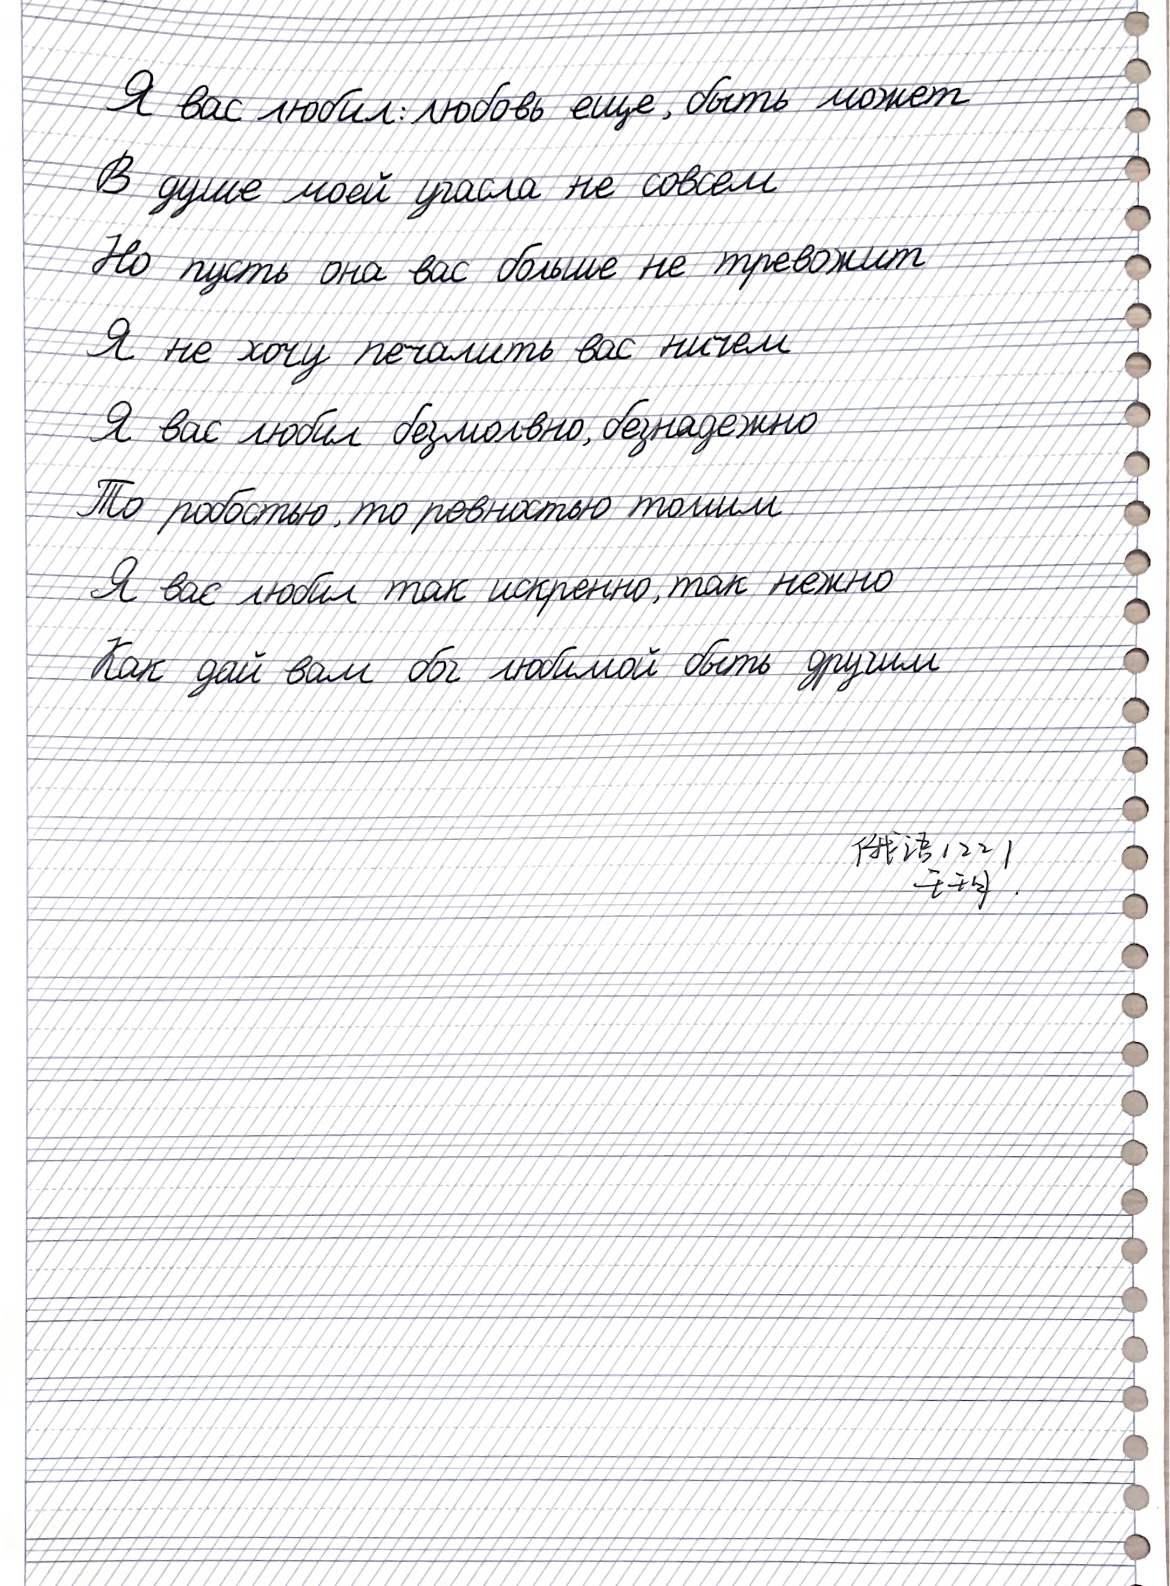 Я вас любил: любовь еще, быть может
В душе моей угасла не совсем
Но пусть она вас больше не тревожит
Я не хочу печалить вас ничем
Я вас любил безмолвно, безнадежно
То робостью, то ревностью томим
Я вас любил так искренно, так нежно
Как дай вам бог любимой быть другим
俄语1221